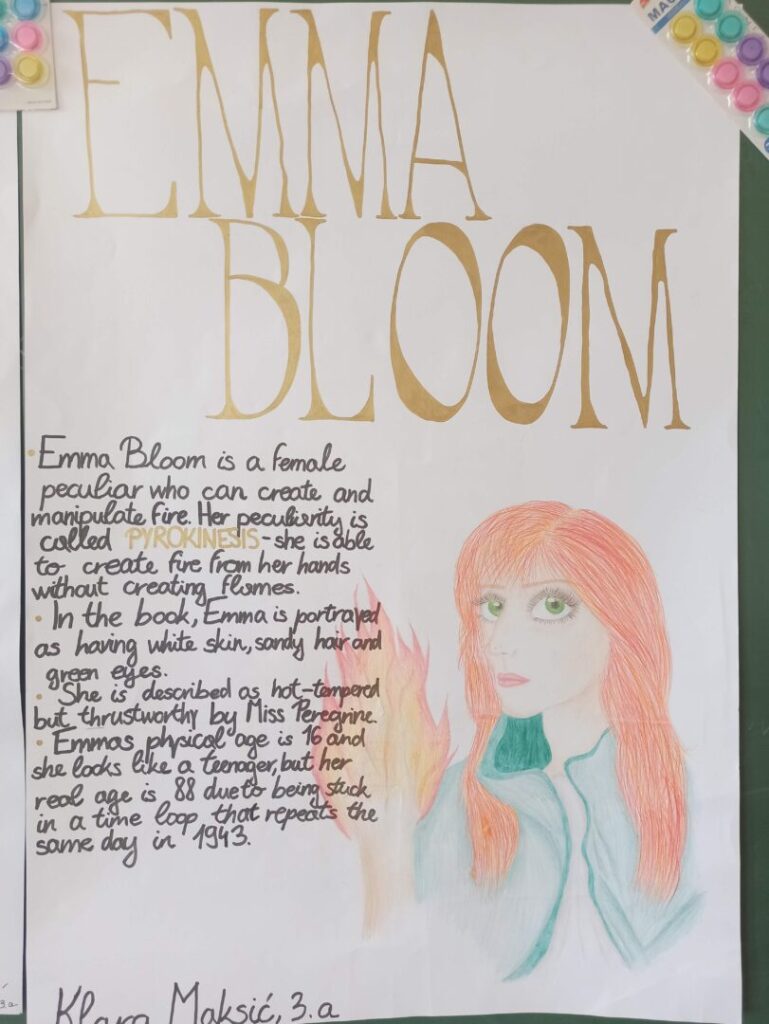 EMMA
BLOOM
• Emma Bloom is a female
peculiar who can create and
manipulate fire. Her peculiarity is
called PYROKINESIS - she is able
to create fire from her hands
without creating flames.
• In the book, Emma is portrayed
as having white skin, sandy hair and
green eyes.
• She is described as hot-tempered
but thrustworthy by Miss Peregrine.
• Emmas physical age is 16 and
she looks like a teenager, but her
real age is 88 due to being stuck
in a time loop that repeats the
same day in 1943.
Klara Maksić, 3.a
3.a